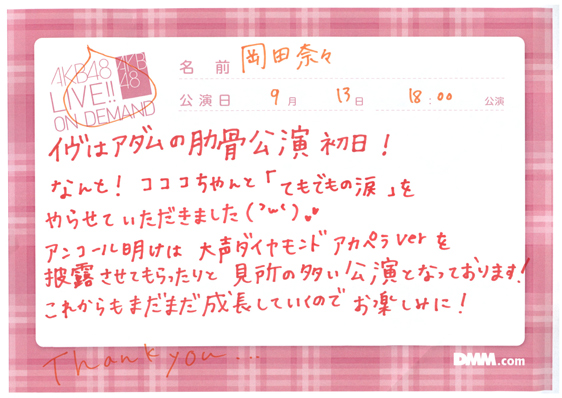 AKB48
LIVE!!
ON DEMAND
AKB
48
名前 岡田奈々
公演日 9月 13日 18:00 公演
イヴはアダムの肋骨公演 初日!
なんと! コココちゃんと「てもでもの涙」を
やらせていただきました(˘ω˘)♥
アンコール明けは 大声ダイヤモンド アカペラverを
披露させてもらったりと 見所の多い公演となっております!
これからもまだまだ成長していくので お楽しみに!
Thank you...
DMM.com